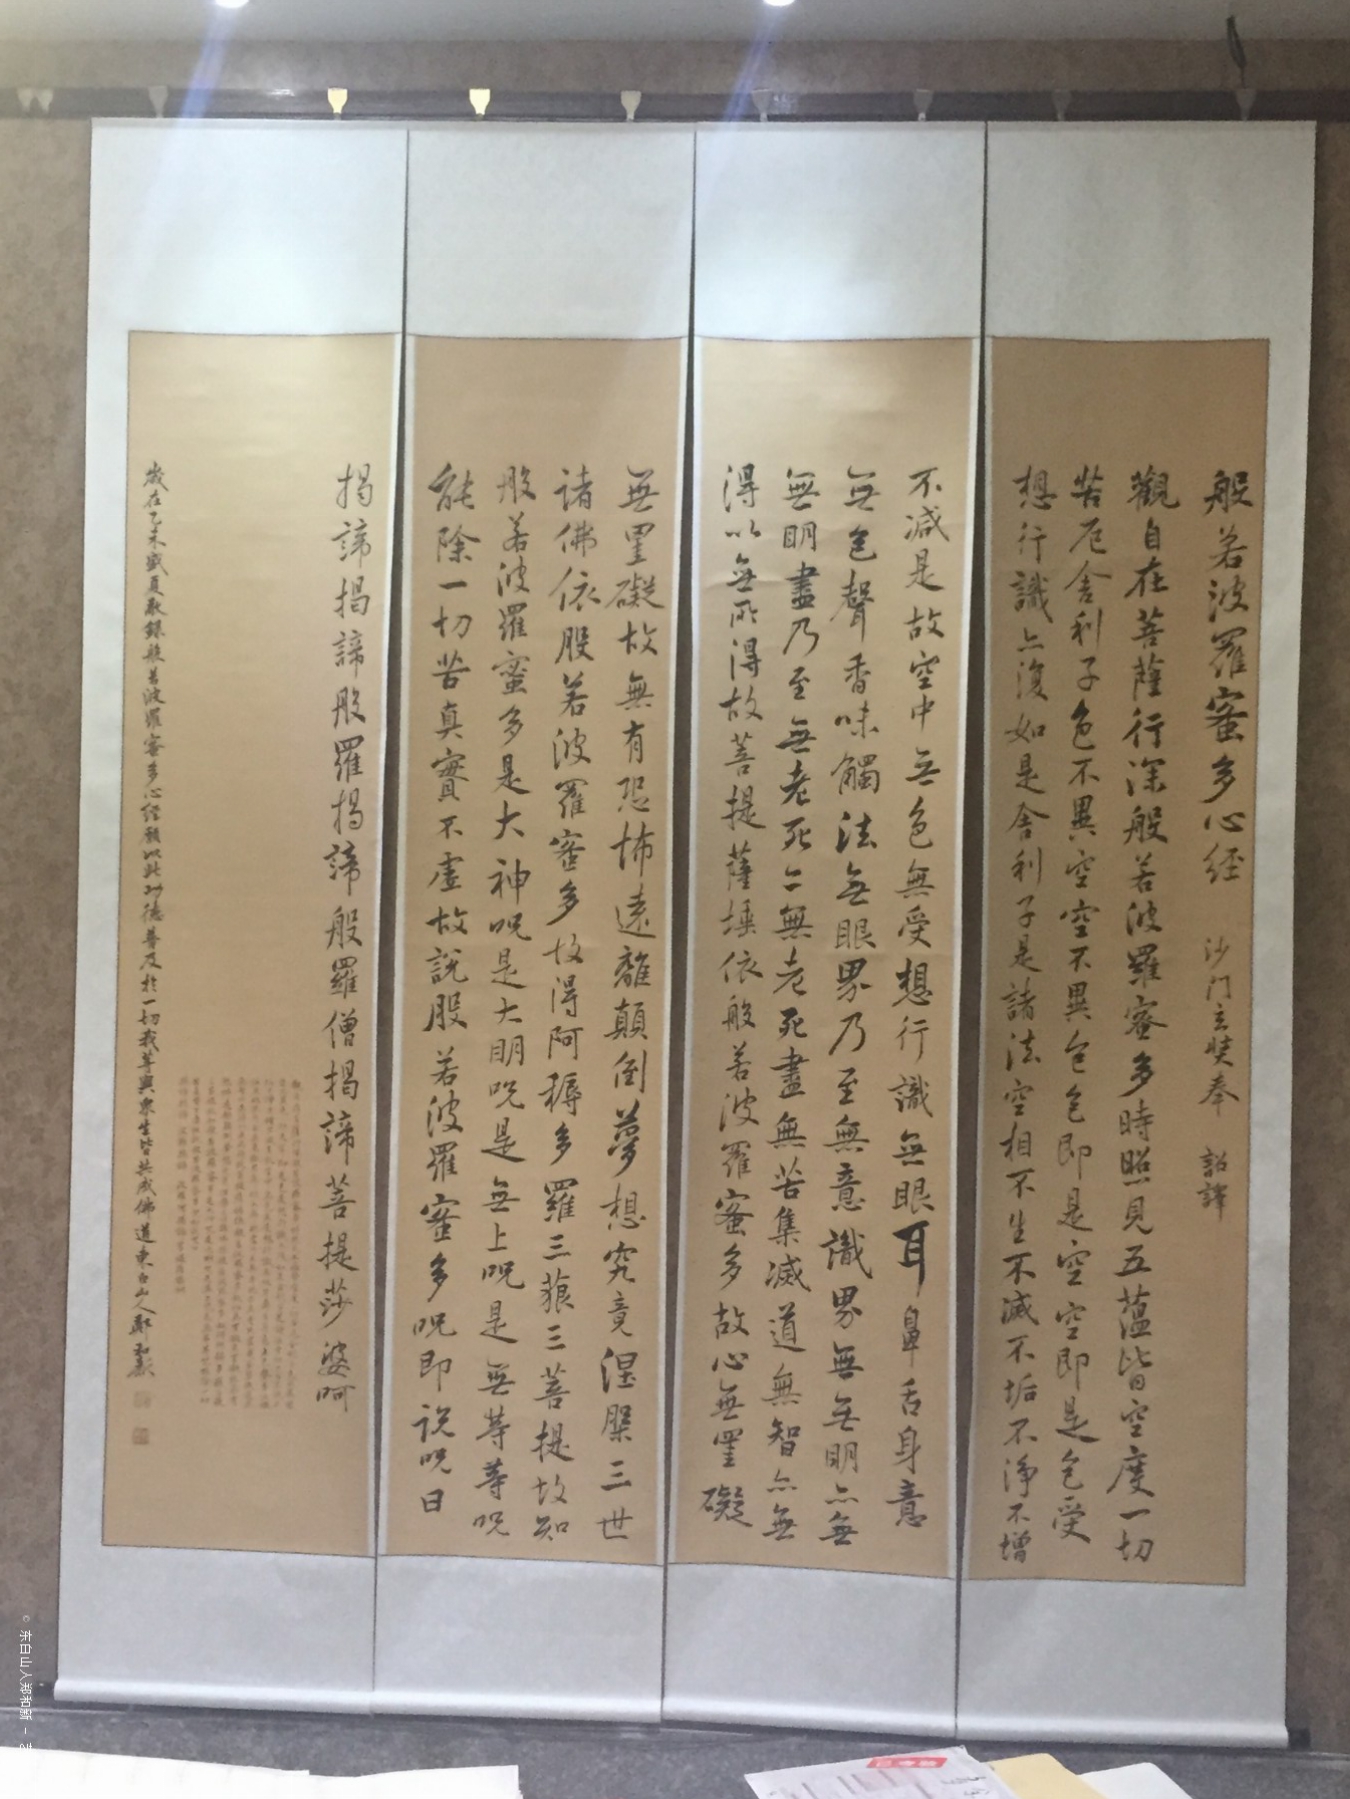 般若波羅蜜多心经 沙门玄奘奉 詔譯
觀自在菩薩行深般若波羅蜜多時照見五蕴皆空度一切
苦厄舍利子色不異空空不異色色即是空空即是色受
想行識亦復如是舍利子是諸法空相不生不滅不垢不淨不增
不減是故空中无色無受想行識無眼耳鼻舌身意
無色聲香味觸法無眼界乃至無意識界無無明亦無
無明盡乃至無老死亦無老死盡無苦集滅道無智亦無
得以無所得故菩提薩埵依般若波羅蜜多故心無罣礙
無罣礙故無有恐怖遠離顛倒夢想究竟涅槃三世
諸佛依般若波羅蜜多故得阿耨多羅三藐三菩提故知
般若波羅蜜多是大神呪是大明呪是無上呪是無等等呪
能除一切苦真實不虛故說般若波羅蜜多呪即説呪曰
揭諦揭諦般羅揭諦般羅僧揭諦菩提莎婆呵
歲在乙未盛夏敬錄般若波羅蜜多心经願以此功德普及於一切我等與眾生皆共成佛道東白山人鄭和新
© 东白山人郑和新 -